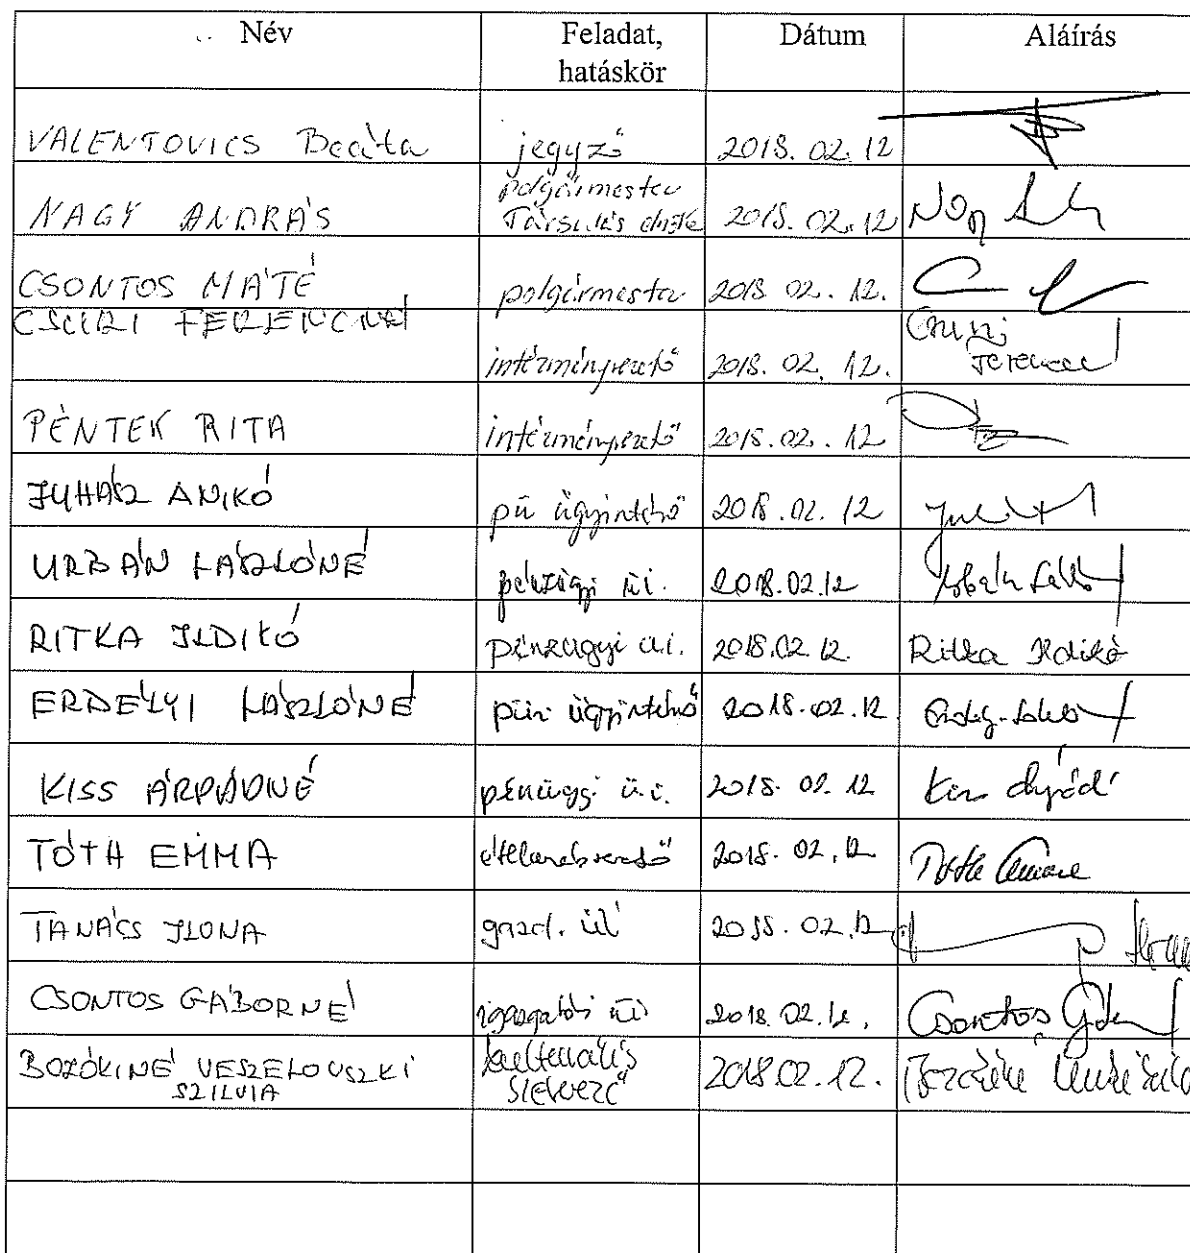 Név Feladat, Dátum Aláírás
hatáskör
VALENTOVICS Beáta jegyző 2018. 02. 12
NAGY ANDRÁS polgármester
Társulás elnöke 2018. 02. 12 Nagy
CSONTOS MÁTÉ polgármester 2018 02. 12.
CSŰRI FERENCNÉ intézményvezető 2018. 02. 12. Ferencné
PÉNTEK RITA intézményvezető 2018. 02. 12
JUHÁSZ ANIKÓ pü ügyintéző 2018. 02. 12
URBÁN LÁSZLÓNÉ pénzügyi üi. 2018.02.12
RITKA ILDIKÓ pénzügyi üi. 2018.02.12. Ritka Ildikó
ERDÉLYI LÁSZLÓNÉ pü. ügyintéző 2018.02.12
KISS ÁRPÁDNÉ pénzügyi ü.i. 2018. 02. 12 Kiss Árpádné
TÓTH EMMA élelmezésvezető 2018. 02. 12 Tóth Emma
TANÁCS ILONA gazd. üi 2018. 02. 12 Ilona
CSONTOS GÁBORNÉ igazgatási üi 2018. 02. 12. Csontos Gáborné
BOZÓKINÉ VESZELOVSZKI kulturális
SZILVIA szervező 2018.02.12.